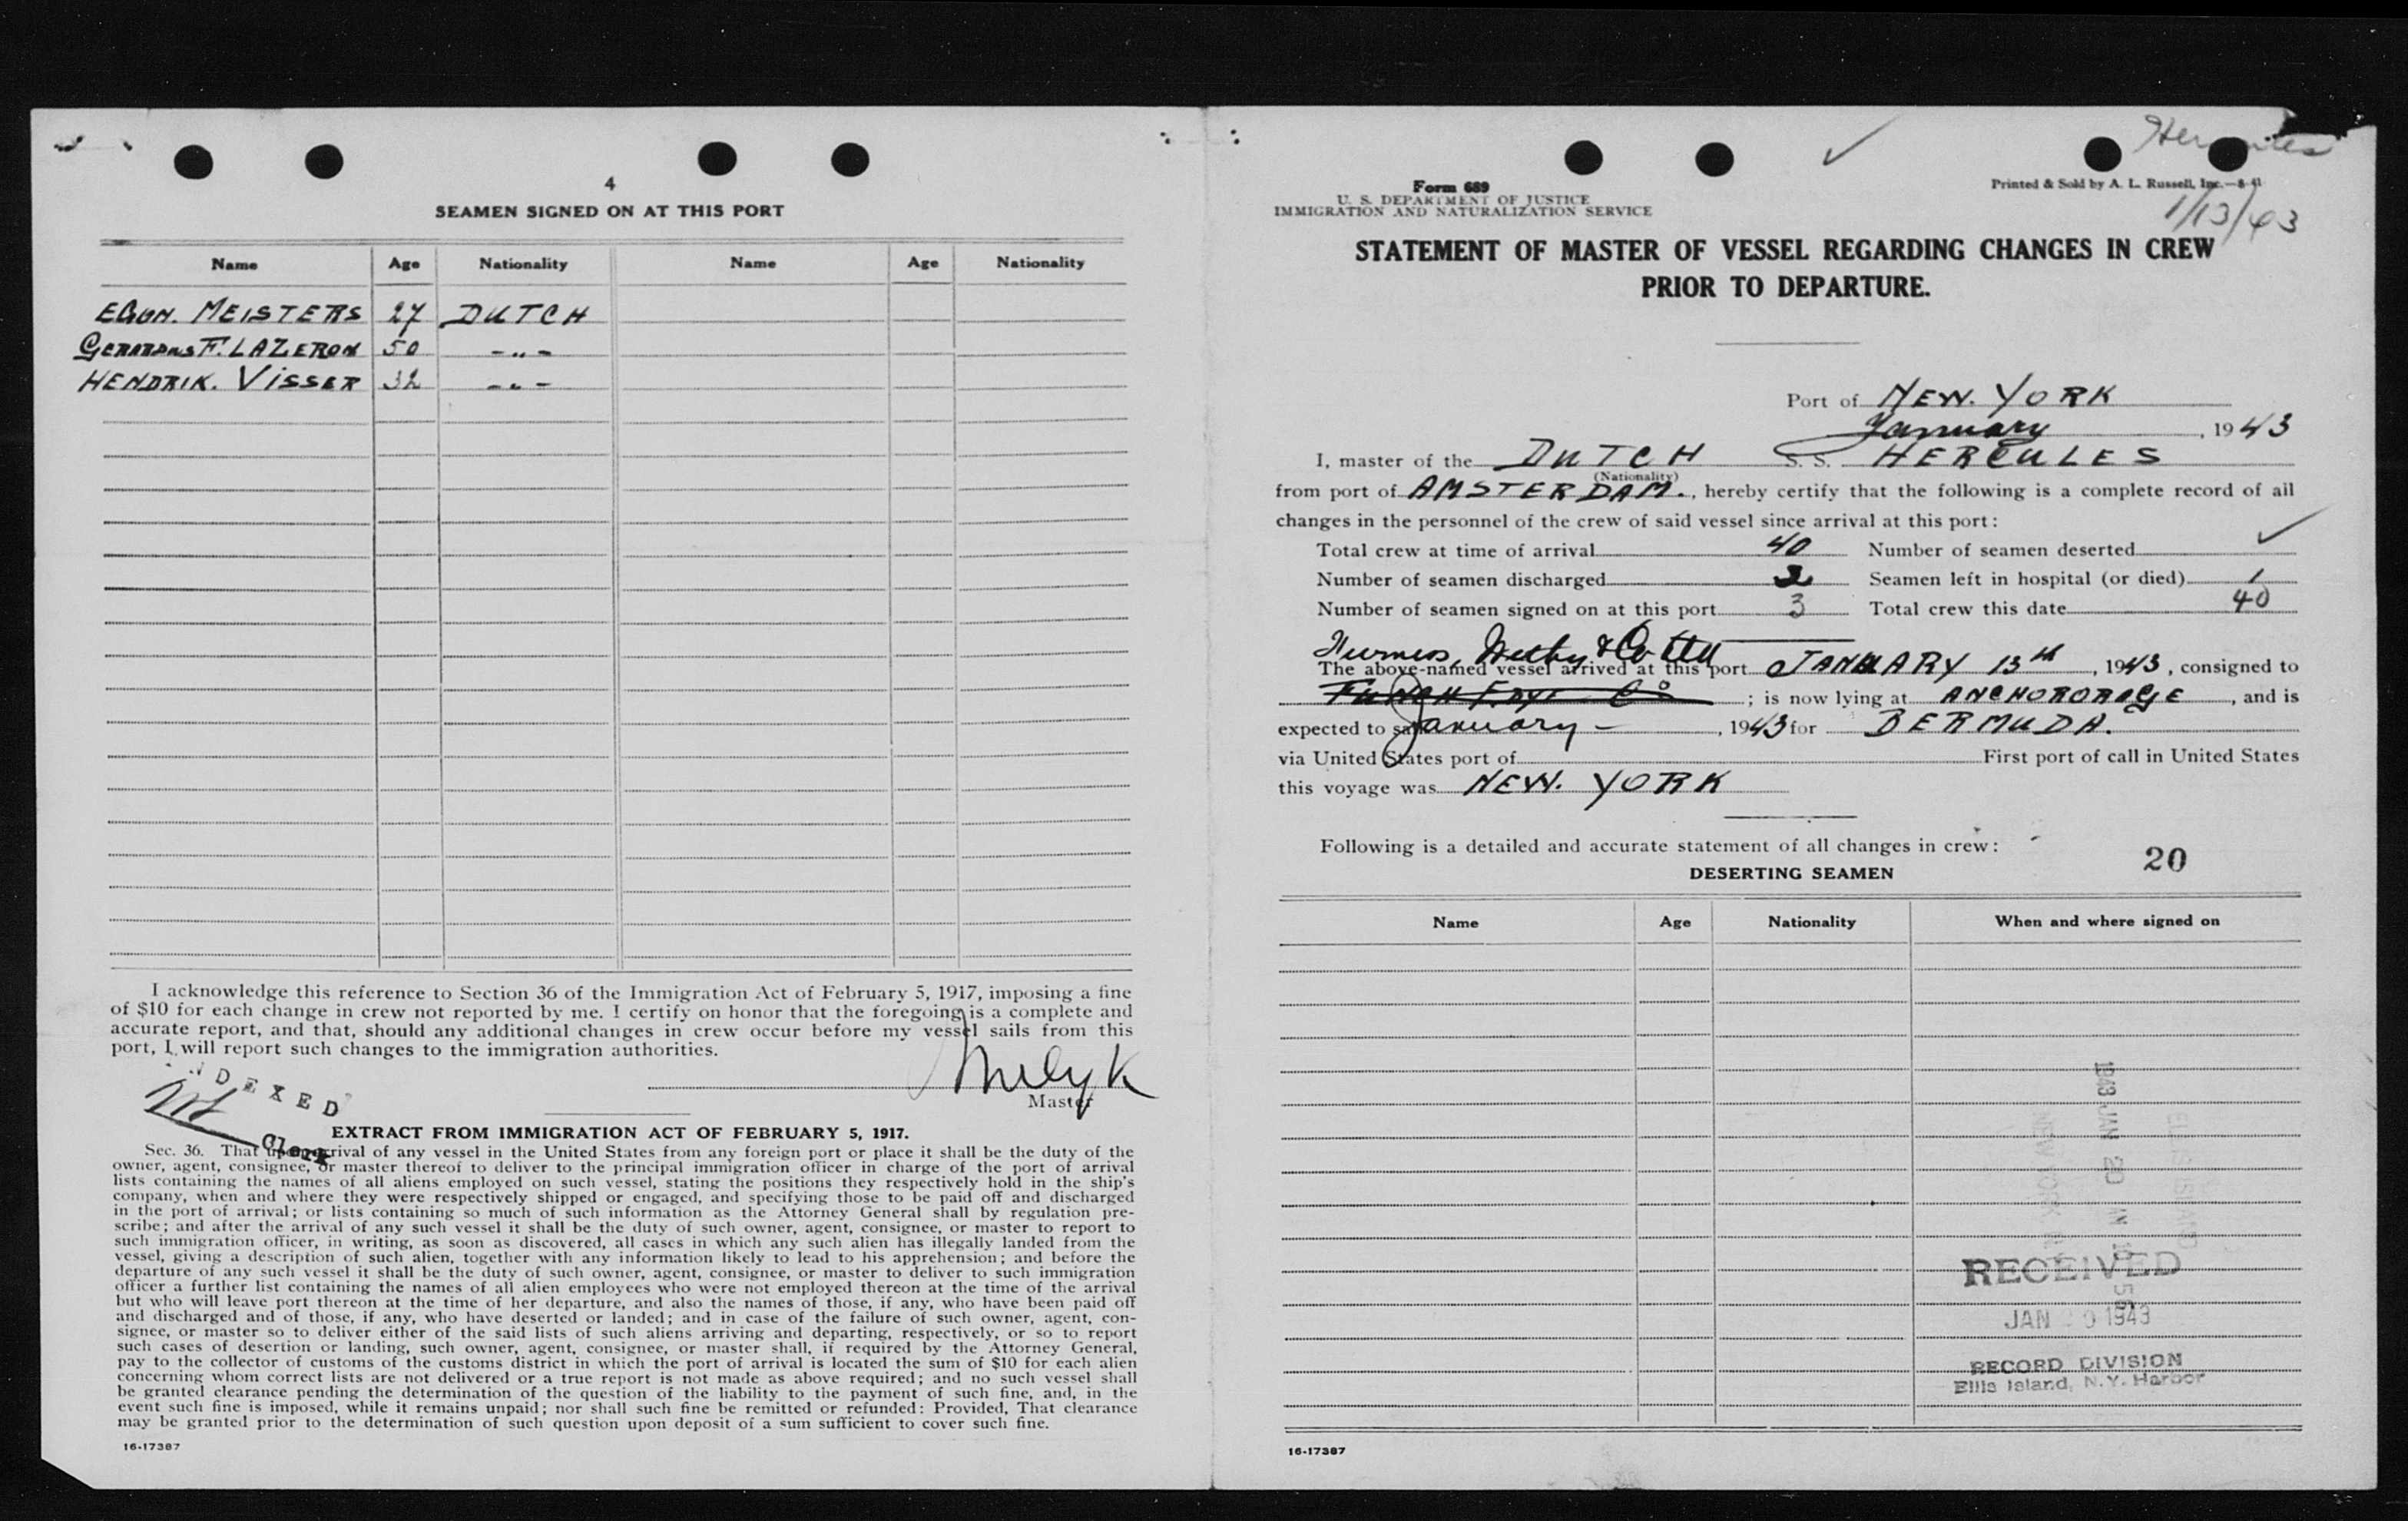 4
SEAMEN SIGNED ON AT THIS PORT
Name Age Nationality Name Age Nationality
EGON. MEISTERS 27 DUTCH
GERARDUS F. LAZERON 50 -„-
HENDRIK. VISSER 32 -„-
I acknowledge this reference to Section 36 of the Immigration Act of February 5, 1917, imposing a fine
of $10 for each change in crew not reported by me. I certify on honor that the foregoing is a complete and
accurate report, and that, should any additional changes in crew occur before my vessel sails from this
port, I will report such changes to the immigration authorities.
Master
INDEXED
Clerk
EXTRACT FROM IMMIGRATION ACT OF FEBRUARY 5, 1917.
Sec. 36. That upon arrival of any vessel in the United States from any foreign port or place it shall be the duty of the
owner, agent, consignee, or master thereof to deliver to the principal immigration officer in charge of the port of arrival
lists containing the names of all aliens employed on such vessel, stating the positions they respectively hold in the ship's
company, when and where they were respectively shipped or engaged, and specifying those to be paid off and discharged
in the port of arrival; or lists containing so much of such information as the Attorney General shall by regulation pre-
scribe; and after the arrival of any such vessel it shall be the duty of such owner, agent, consignee, or master to report to
such immigration officer, in writing, as soon as discovered, all cases in which any such alien has illegally landed from the
vessel, giving a description of such alien, together with any information likely to lead to his apprehension; and before the
departure of any such vessel it shall be the duty of such owner, agent, consignee, or master to deliver to such immigration
officer a further list containing the names of all alien employees who were not employed thereon at the time of the arrival
but who will leave port thereon at the time of her departure, and also the names of those, if any, who have been paid off
and discharged and of those, if any, who have deserted or landed; and in case of the failure of such owner, agent, con-
signee, or master so to deliver either of the said lists of such aliens arriving and departing, respectively, or so to report
such cases of desertion or landing, such owner, agent, consignee, or master shall, if required by the Attorney General,
pay to the collector of customs of the customs district in which the port of arrival is located the sum of $10 for each alien
concerning whom correct lists are not delivered or a true report is not made as above required; and no such vessel shall
be granted clearance pending the determination of the question of the liability to the payment of such fine, and, in the
event such fine is imposed, while it remains unpaid; nor shall such fine be remitted or refunded: Provided, That clearance
may be granted prior to the determination of such question upon deposit of a sum sufficient to cover such fine.
16-17387
Hercules
1/13/43
Form 689
U. S. DEPARTMENT OF JUSTICE
IMMIGRATION AND NATURALIZATION SERVICE
Printed & Sold by A. L. Russell, Inc.—8-41
STATEMENT OF MASTER OF VESSEL REGARDING CHANGES IN CREW
PRIOR TO DEPARTURE.
Port of NEW. YORK
January, 1943
I, master of the DUTCH S. S. HERCULES
(Nationality)
from port of AMSTERDAM., hereby certify that the following is a complete record of all
changes in the personnel of the crew of said vessel since arrival at this port:
Total crew at time of arrival 40 Number of seamen deserted ✓
Number of seamen discharged 2 Seamen left in hospital (or died) 1
Number of seamen signed on at this port 3 Total crew this date 40
Furness, Withy & Co Ltd
The above-named vessel arrived at this port JANUARY 13th, 1943, consigned to
; is now lying at ANCHORORAGE, and is
expected to sail January —, 1943 for BERMUDA.
via United States port of First port of call in United States
this voyage was NEW. YORK
Following is a detailed and accurate statement of all changes in crew:
20
DESERTING SEAMEN
Name Age Nationality When and where signed on
1943 JAN 20
ELLIS ISLAND
NEW YORK
RECEIVED
JAN 20 1943
RECORD DIVISION
Ellis Island, N.Y. Harbor
16-17387